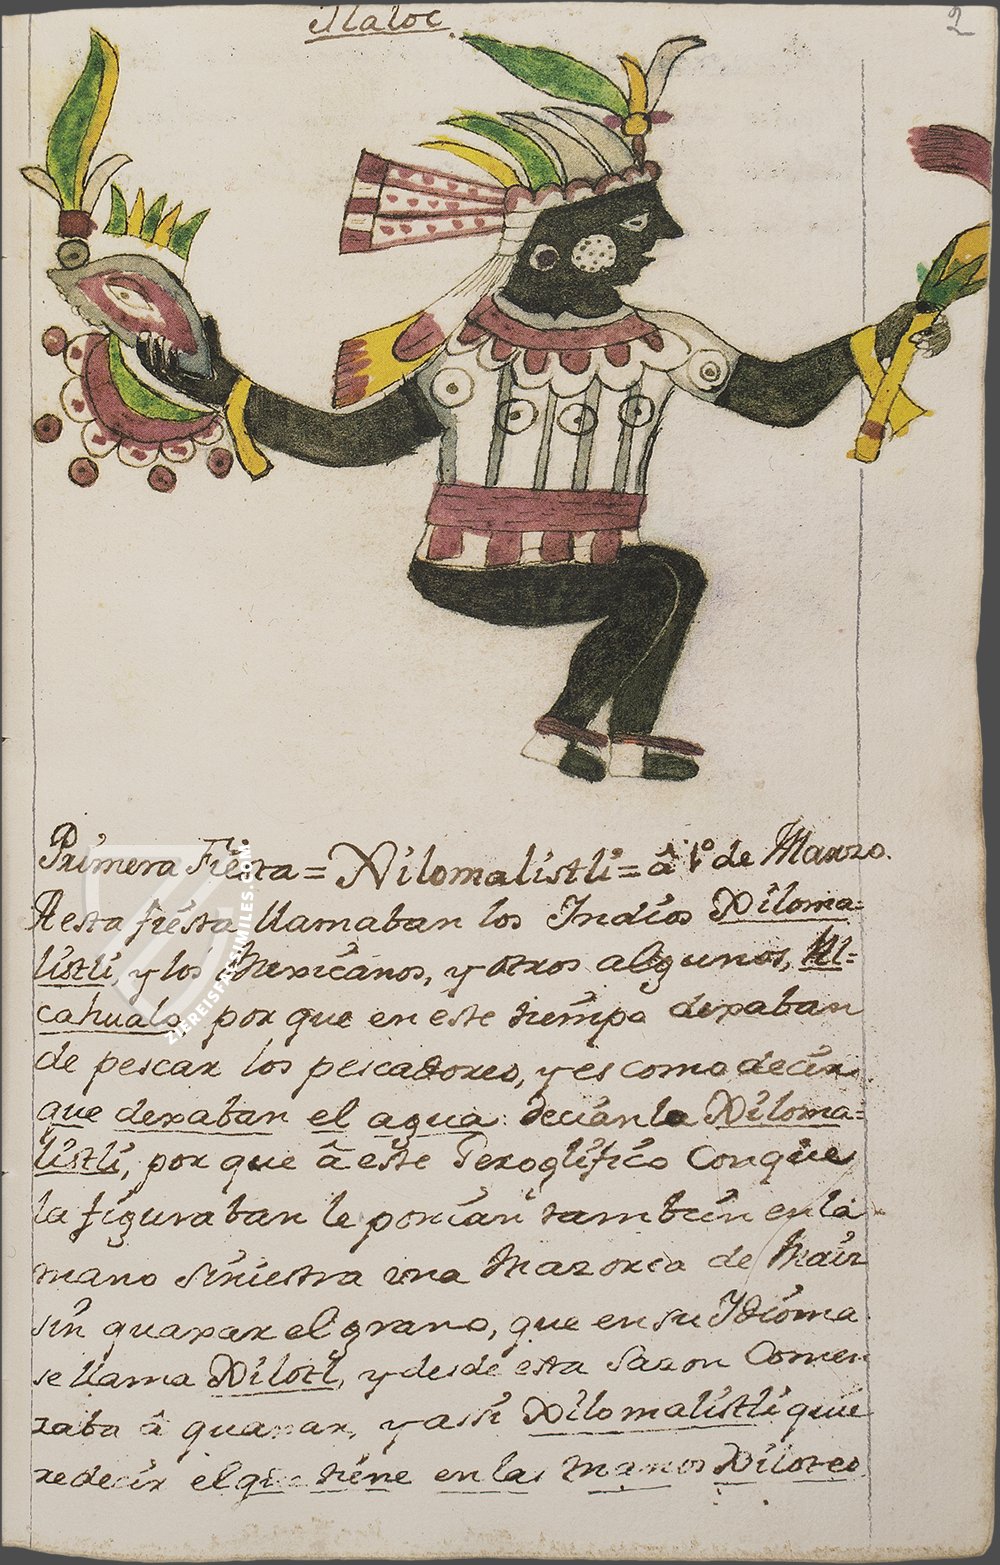 Tlaloc.
2
Primera Fiesta = Xilomalistli = â 1º de Marzo.
A esta fiesta llamaban los Indios Xiloma=
listli, y los Mexicanos, y otros algunos, At=
cahualo, por que en este tiempo dexaban
de pescar los pescadores, y es como decir
que dexaban el agua: decianla Xiloma=
listli, por que â este Geroglifico con que
la figuraban le ponian tambien en la
mano siniestra una Mazorca de Maiz
sin quaxar el grano, que en su Idioma
se llama Xilotl, y desde esta sazon Comen
zaba â quaxar, y assi Xilomalistli quie
re decir el que tiene en las manos Xilotes
ZIEREISFACSIMILES.COM